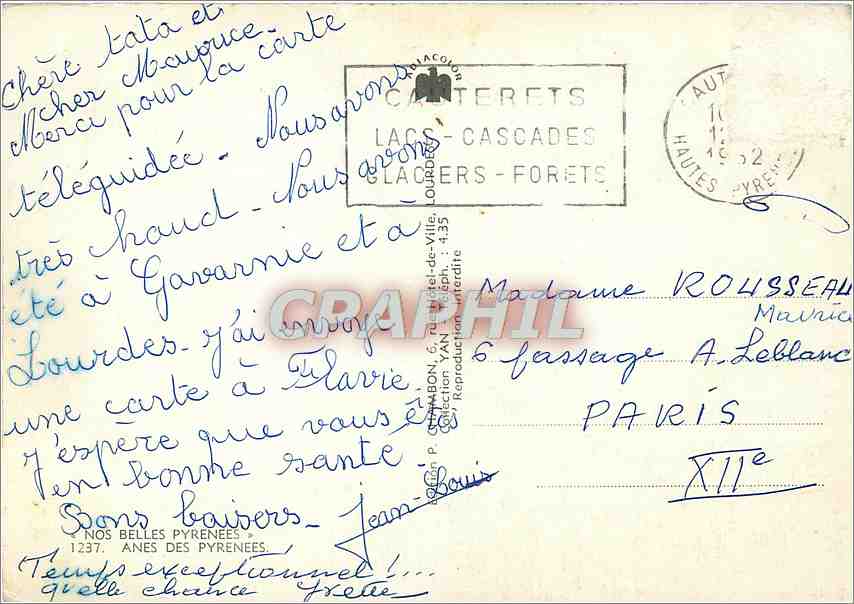 Chère tata et
cher Maurice
Merci pour la carte
téléguidée - Nous avons
très chaud - Nous avons
été à Gavarnie et à
Lourdes - J'ai envoyé
une carte à Flavie.
J'espère que vous êtes
en bonne santé
Bons baisers - Jean-Louis
« NOS BELLES PYRENEES »
1237. ANES DES PYRENEES.
Temps exceptionnel !...
quelle chance Yvette
ADIACOLOR
CAUTERETS
LACS - CASCADES
GLACIERS - FORETS
HAUTES PYRENE
P. CHAMBON, 6, rue Hôtel-de-Ville, LOURDES
Collection YAN Téléph. : 4.35
Reproduction interdite
CPAPHIL
Madame ROUSSEAU
Maurice
6 passage A. Leblanc
PARIS
XIIe